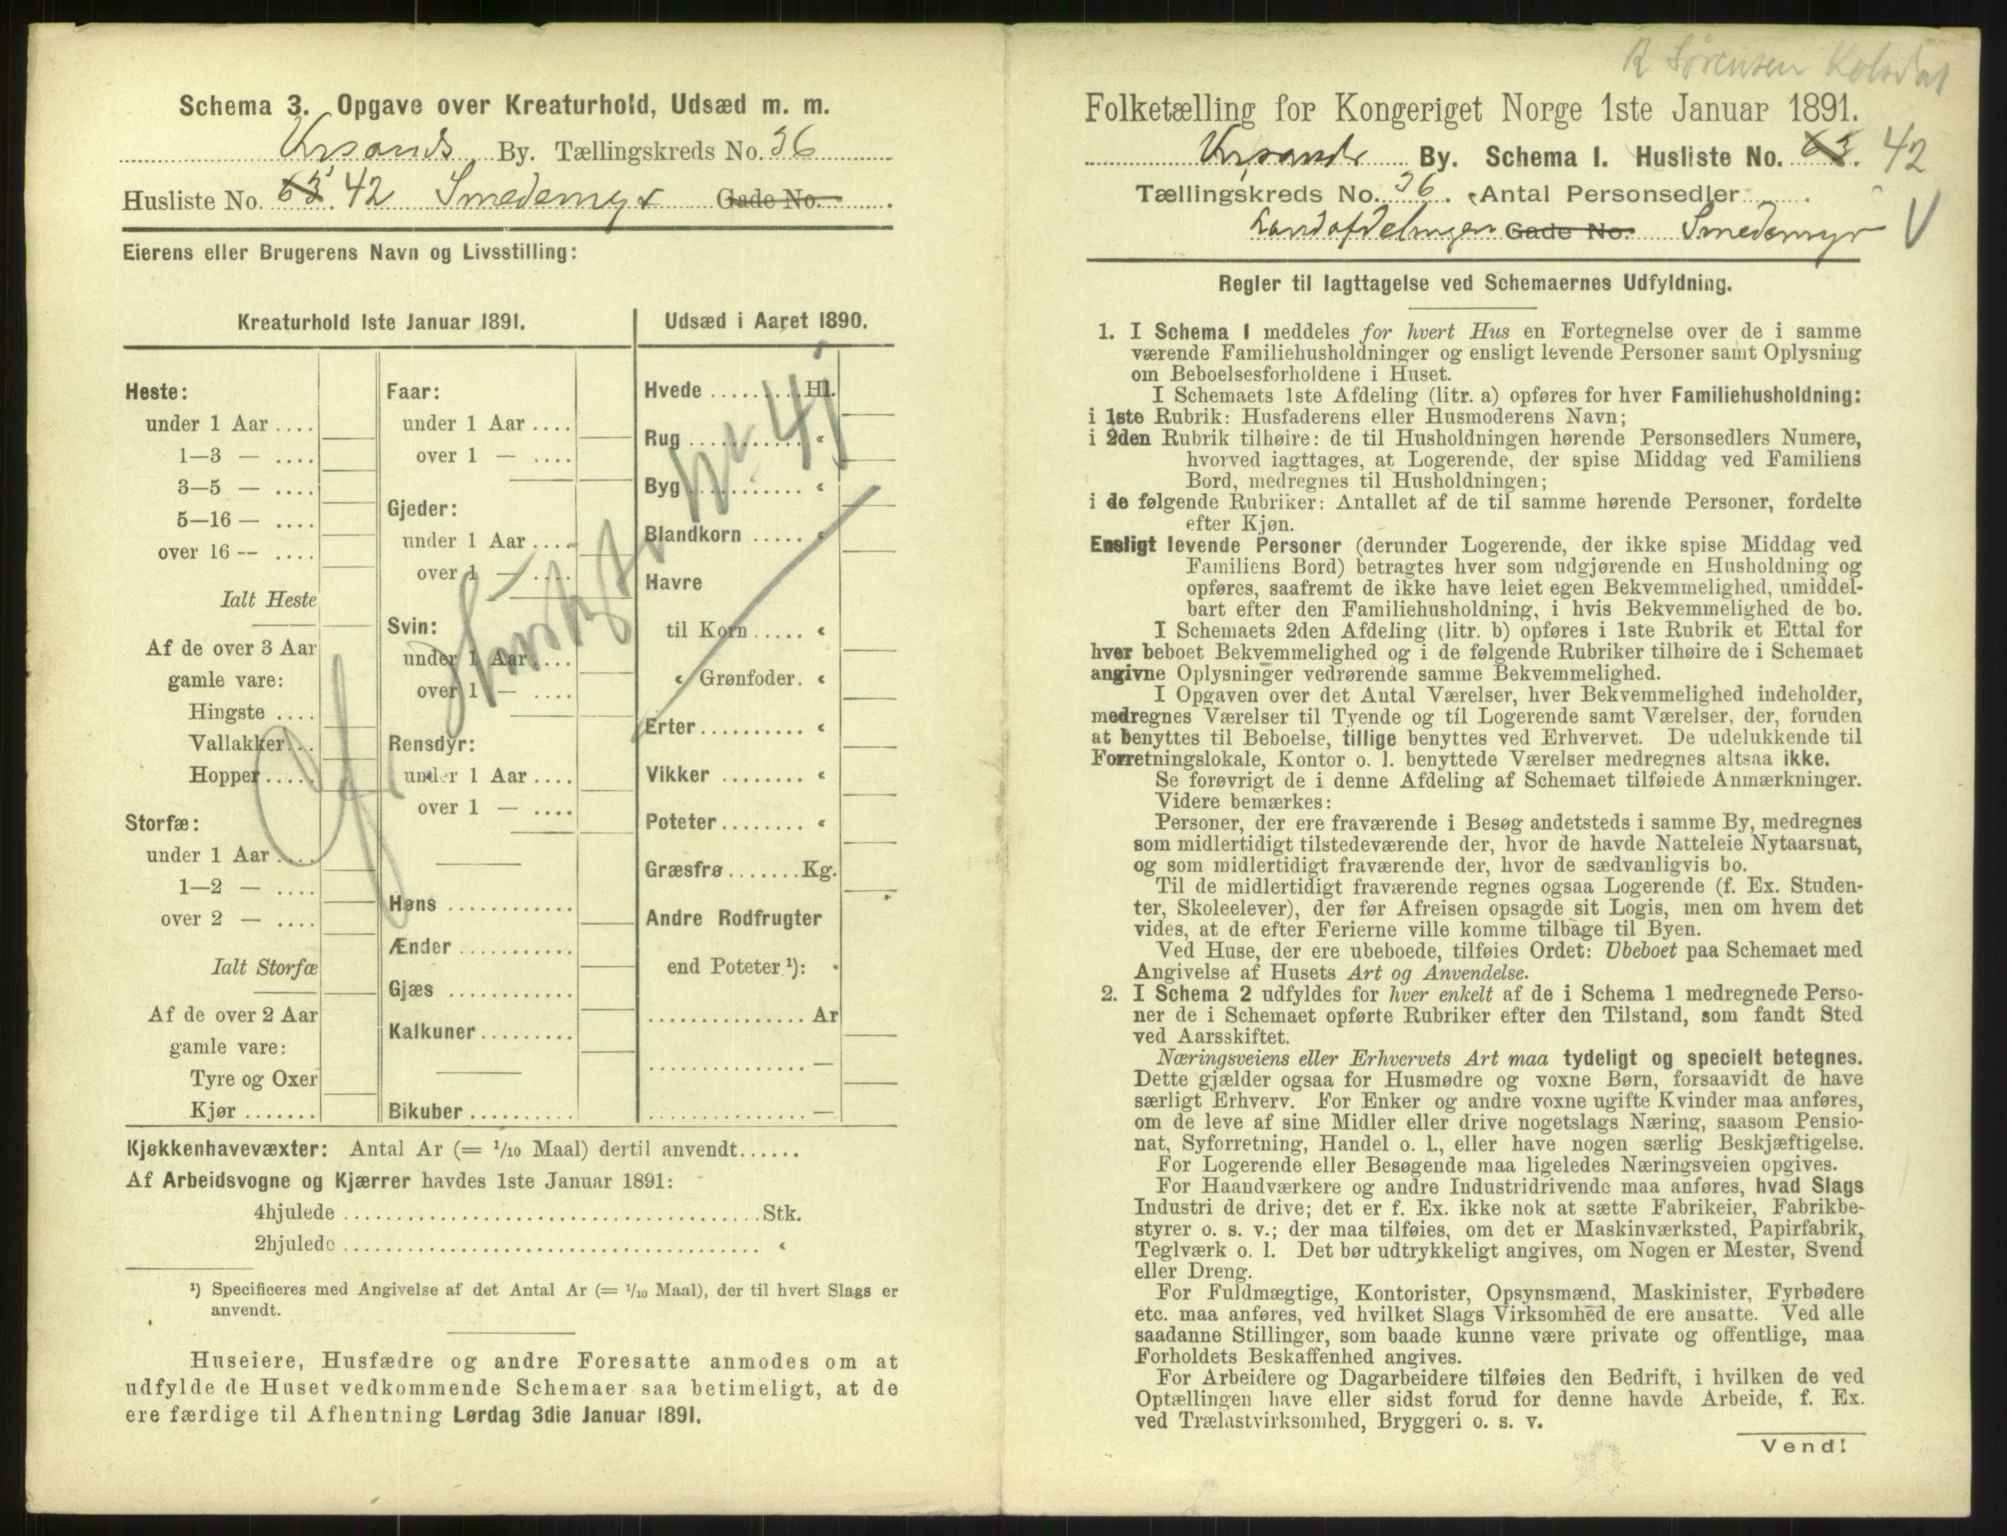 Schema 3. Opgave over Kreaturhold, Udsæd m. m.
Krsands By. Tællingskreds No. 36
Husliste No. 63. 42 Smedemyr Gade No.
Eierens eller Brugerens Navn og Livsstilling:
Kreaturhold 1ste Januar 1891.
Heste:
under 1 Aar ....
1—3 — ....
3—5 — ....
5—16 — ....
over 16 — ....
Ialt Heste
Af de over 3 Aar
gamle vare:
Hingste ....
Vallakker...
Hopper.....
Storfæ:
under 1 Aar ....
1—2 — ....
over 2 — ....
Ialt Storfæ
Af de over 2 Aar
gamle vare:
Tyre og Oxer
Kjør .......
Faar:
under 1 Aar ....
over 1 — ....
Gjeder:
under 1 Aar ....
over 1 — ....
Svin:
under 1 Aar ....
over 1 — ....
Rensdyr:
under 1 Aar ....
over 1 — ....
Høns ............
Ænder ............
Gjæs ............
Kalkuner .........
Bikuber ..........
Udsæd i Aaret 1890.
Hvede .........Hl.
Rug ........... «
Byg ........... «
Blandkorn ..... «
Havre
til Korn ..... «
« Grønfoder. «
Erter .......... «
Vikker ........ «
Poteter ........ «
Græsfrø .......Kg.
Andre Rodfrugter
end Poteter ¹):
............... Ar
............... —
............... —
Cfr. Hustr. No 41
Kjøkkenhavevæxter: Antal Ar (= 1/10 Maal) dertil anvendt......
Af Arbeidsvogne og Kjærrer havdes 1ste Januar 1891:
4hjulede ........................................Stk.
2hjulede ........................................ «
¹) Specificeres med Angivelse af det Antal Ar (= 1/10 Maal), der til hvert Slags er
anvendt.
Huseiere, Husfædre og andre Foresatte anmodes om at
udfylde de Huset vedkommende Schemaer saa betimeligt, at de
ere færdige til Afhentning Lørdag 3die Januar 1891.
R Sørensen Kolsdal
Folketælling for Kongeriget Norge 1ste Januar 1891.
Krsands By. Schema 1. Husliste No. 63. 42
Tællingskreds No. 36. Antal Personsedler
Landafdelingen Gade No. Smedemyr V
Regler til Iagttagelse ved Schemaernes Udfyldning.
1. I Schema 1 meddeles for hvert Hus en Fortegnelse over de i samme
værende Familiehusholdninger og ensligt levende Personer samt Oplysning
om Beboelsesforholdene i Huset.
I Schemaets 1ste Afdeling (litr. a) opføres for hver Familiehusholdning:
i 1ste Rubrik: Husfaderens eller Husmoderens Navn;
i 2den Rubrik tilhøire: de til Husholdningen hørende Personsedlers Numere,
hvorved iagttages, at Logerende, der spise Middag ved Familiens
Bord, medregnes til Husholdningen;
i de følgende Rubriker: Antallet af de til samme hørende Personer, fordelte
efter Kjøn.
Ensligt levende Personer (derunder Logerende, der ikke spise Middag ved
Familiens Bord) betragtes hver som udgjørende en Husholdning og
opføres, saafremt de ikke have leiet egen Bekvemmelighed, umiddel-
bart efter den Familiehusholdning, i hvis Bekvemmelighed de bo.
I Schemaets 2den Afdeling (litr. b) opføres i 1ste Rubrik et Ettal for
hver beboet Bekvemmelighed og i de følgende Rubriker tilhøire de i Schemaet
angivne Oplysninger vedrørende samme Bekvemmelighed.
I Opgaven over det Antal Værelser, hver Bekvemmelighed indeholder,
medregnes Værelser til Tyende og til Logerende samt Værelser, der, foruden
at benyttes til Beboelse, tillige benyttes ved Erhvervet. De udelukkende til
Forretningslokale, Kontor o. l. benyttede Værelser medregnes altsaa ikke.
Se forøvrigt de i denne Afdeling af Schemaet tilføiede Anmærkninger.
Videre bemærkes:
Personer, der ere fraværende i Besøg andetsteds i samme By, medregnes
som midlertidigt tilstedeværende der, hvor de havde Natteleie Nytaarsnat,
og som midlertidigt fraværende der, hvor de sædvanligvis bo.
Til de midlertidigt fraværende regnes ogsaa Logerende (f. Ex. Studen-
ter, Skoleelever), der før Afreisen opsagde sit Logis, men om hvem det
vides, at de efter Ferierne ville komme tilbage til Byen.
Ved Huse, der ere ubeboede, tilføies Ordet: Ubeboet paa Schemaet med
Angivelse af Husets Art og Anvendelse.
2. I Schema 2 udfyldes for hver enkelt af de i Schema 1 medregnede Perso-
ner de i Schemaet opførte Rubriker efter den Tilstand, som fandt Sted
ved Aarsskiftet.
Næringsveiens eller Erhvervets Art maa tydeligt og specielt betegnes.
Dette gjælder ogsaa for Husmødre og voxne Børn, forsaavidt de have
særligt Erhverv. For Enker og andre voxne ugifte Kvinder maa anføres,
om de leve af sine Midler eller drive nogetslags Næring, saasom Pensio-
nat, Syforretning, Handel o. l., eller have nogen særlig Beskjæftigelse.
For Logerende eller Besøgende maa ligeledes Næringsveien opgives.
For Haandværkere og andre Industridrivende maa anføres, hvad Slags
Industri de drive; det er f. Ex. ikke nok at sætte Fabrikeier, Fabrikbe-
styrer o. s. v.; der maa tilføies, om det er Maskinværksted, Papirfabrik,
Teglværk o. l. Det bør udtrykkeligt angives, om Nogen er Mester, Svend
eller Dreng.
For Fuldmægtige, Kontorister, Opsynsmænd, Maskinister, Fyrbødere
etc. maa anføres, ved hvilket Slags Virksomhed de ere ansatte. Ved alle
saadanne Stillinger, som baade kunne være private og offentlige, maa
Forholdets Beskaffenhed angives.
For Arbeidere og Dagarbeidere tilføies den Bedrift, i hvilken de ved
Optællingen have eller sidst forud for denne havde Arbeide, f. Ex.
ved Trælastvirksomhed, Bryggeri o. s. v.
Vend!